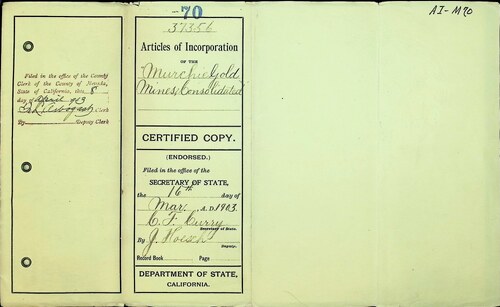 70
37356
Articles of Incorporation
OF THE
"Murchie Gold
Mines Consolidated"
CERTIFIED COPY.
(ENDORSED.)
Filed in the office of the
SECRETARY OF STATE,
the 16th day of
Mar. A.D. 1903.
C. F. Curry
Secretary of State.
By J. Hoesch
Deputy.
Record Book Page
DEPARTMENT OF STATE,
CALIFORNIA.
Filed in the office of the County
Clerk of the County of Nevada,
State of California, this 8
day of April 1903
Clerk
By Deputy Clerk
AI-M70